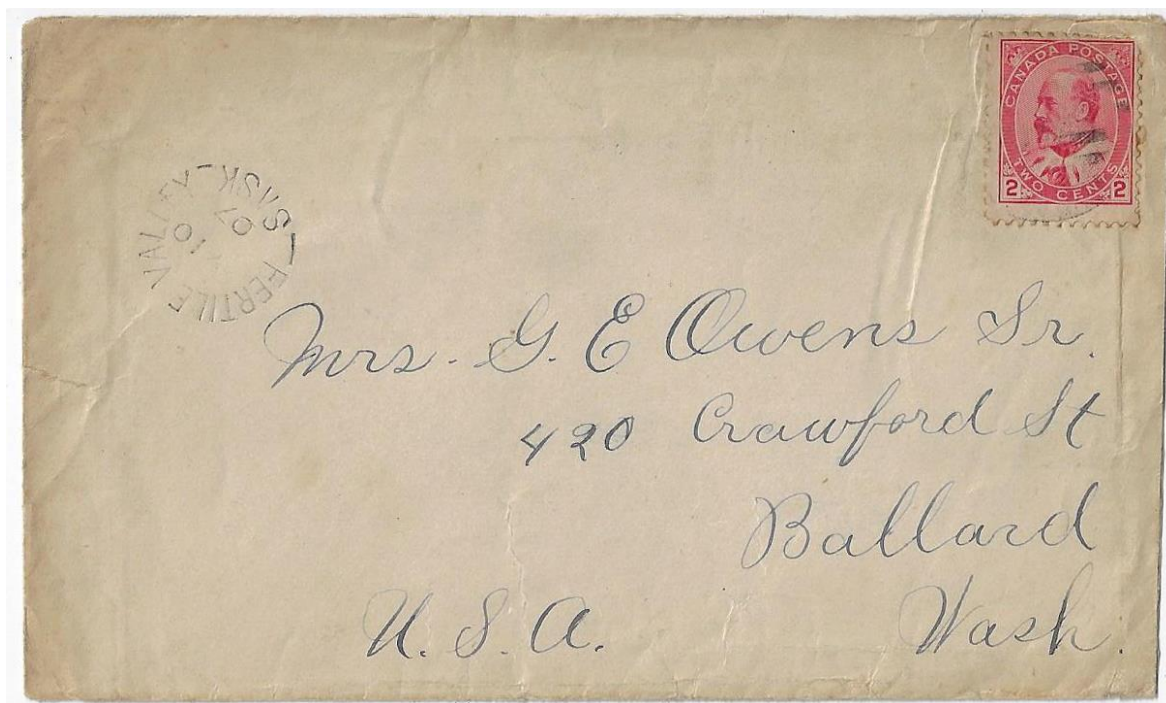 CANADA POSTAGE
2 TWO CENTS 2
FERTILE VALLEY - SASK -
10
07
Mrs. G. E Owens Sr.
420 Crawford St
Ballard
U.S.A. Wash.